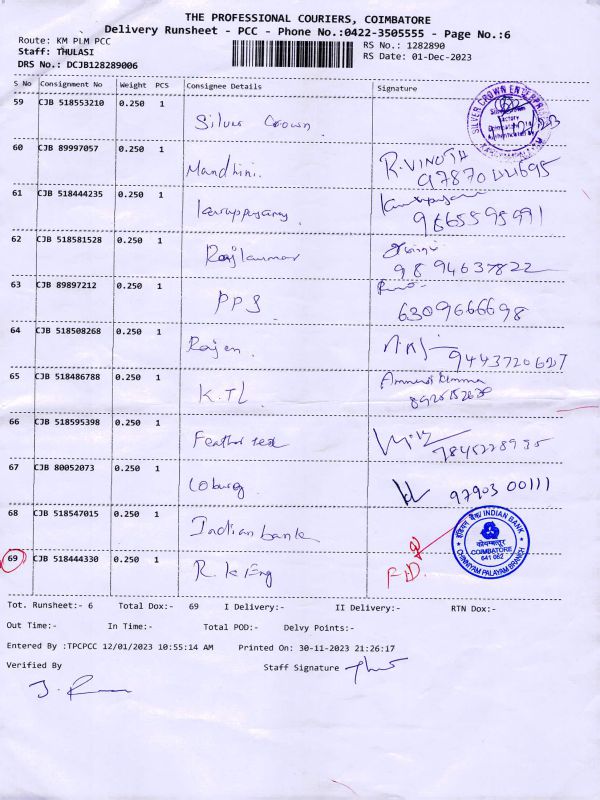 THE PROFESSIONAL COURIERS, COIMBATORE
Delivery Runsheet - PCC - Phone No.:0422-3505555 - Page No.:6
Route: KM PLM PCC
Staff: THULASI
DRS No.: DCJB128289006
RS No.: 1282890
RS Date: 01-Dec-2023
S No Consignment No Weight PCS Consignee Details Signature
59 CJB 518553210 0.250 1 Silver Crown
SILVER CROWN ENTERPRI
60 CJB 89997057 0.250 1 Mandhini. R. VINOTH
9787044695
61 CJB 518444235 0.250 1 Karuppusamy
9665595991
62 CJB 518581528 0.250 1 Rajkumar
9894637822
63 CJB 89897212 0.250 1 PPS
6309666698
64 CJB 518508268 0.250 1 Rajen.
9443720627
65 CJB 518486788 0.250 1 K.TL
66 CJB 518595398 0.250 1 Feather
67 CJB 80052073 0.250 1 Coburg 97903 00111
68 CJB 518547015 0.250 1 Indian bank
इंडियन बैंक/ INDIAN BANK
कोयम्बत्तूर
COIMBATORE
641 062
CHINNIYAM PALAYAM BRANCH
69 CJB 518444330 0.250 1 R.K Eng
Tot. Runsheet:- 6 Total Dox:- 69 I Delivery:- II Delivery:- RTN Dox:-
Out Time:- In Time:- Total POD:- Delvy Points:-
Entered By :TPCPCC 12/01/2023 10:55:14 AM Printed On: 30-11-2023 21:26:17
Verified By Staff Signature